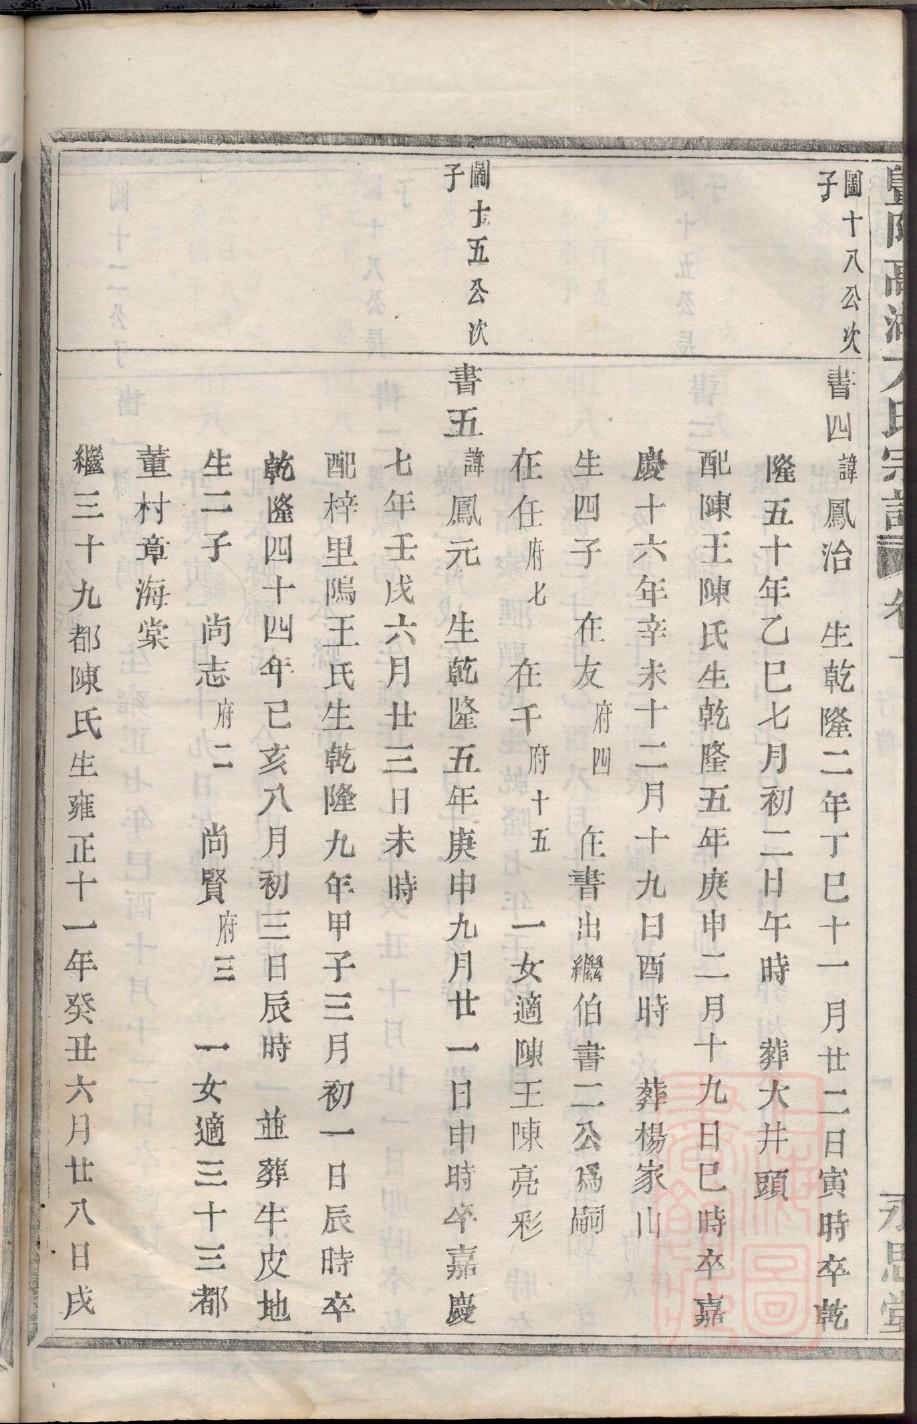 圖十八公次
子
書四諱鳳治 生乾隆二年丁巳十一月廿二日寅時卒乾
隆五十年乙巳七月初二日午時 葬大井頭
配陳王陳氏生乾隆五年庚申二月十九日巳時卒嘉
慶十六年辛未十二月十九日酉時 葬楊家山
生四子 在友府四 在書出繼伯書二公爲嗣
在任府七 在千府十五 一女適陳王陳亮彩
圖十五公次
子
書五諱鳳元 生乾隆五年庚申九月廿一日申時卒嘉慶
七年壬戌六月廿三日未時
配梓里隖王氏生乾隆九年甲子三月初一日辰時卒
乾隆四十四年己亥八月初三日辰時 並葬牛皮地
生二子 尚志府二 尚賢府三 一女適三十三都
董村章海棠
繼三十九都陳氏生雍正十一年癸丑六月廿八日戌